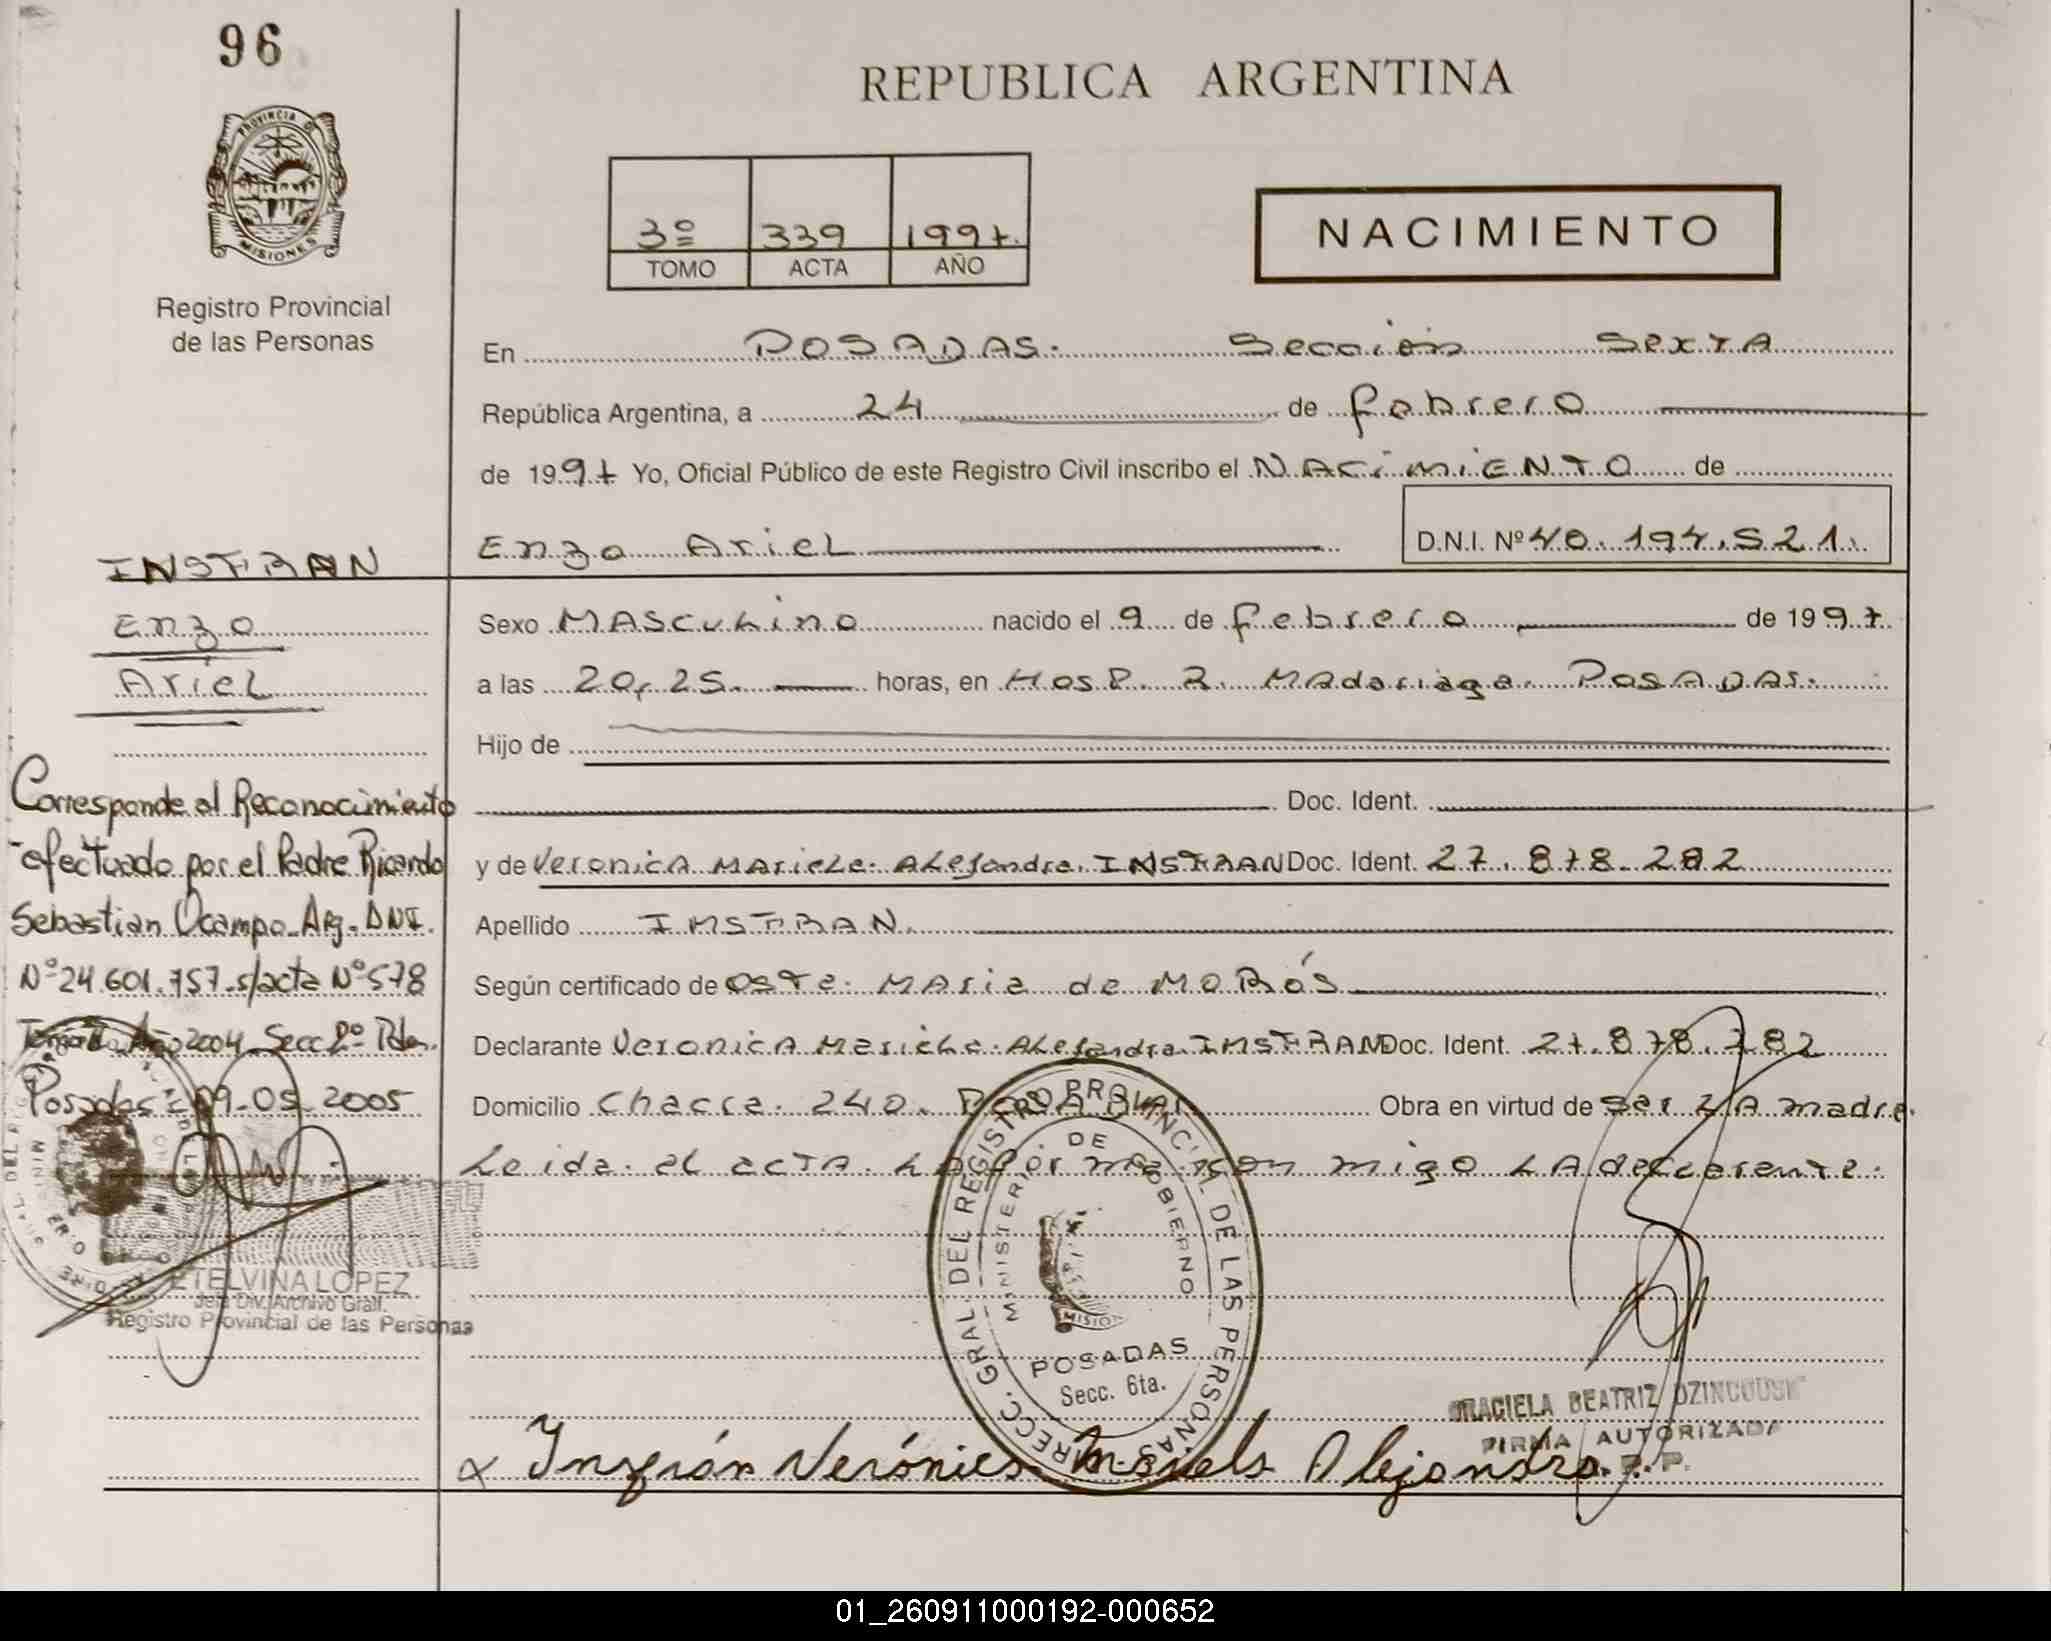 96
PROVINCIA DE
MISIONES
Registro Provincial
de las Personas
REPUBLICA ARGENTINA
3º 339 1997.
TOMO ACTA AÑO
NACIMIENTO
En POSADAS. Sección Sexta
República Argentina, a 24 de febrero
de 1997 Yo, Oficial Público de este Registro Civil inscribo el NACIMIENTO de
Enzo Ariel D.N.I. Nº 40.194.521.
INSFRAN
Enzo
Ariel
Sexo Masculino nacido el 9 de febrero de 1997
a las 20,25. horas, en Hosp. R. Madariaga. POSADAS.
Hijo de
Doc. Ident.
y de Veronica Mariela Alejandra INSFRAN Doc. Ident. 27.878.282
Apellido INSFRAN.
Según certificado de Maria de
Declarante Veronica Mariela Alejandra INSFRAN Doc. Ident. 27.878.782
Domicilio Chacra 240. Obra en virtud de ser LA madre.
Leida el acta la conmigo LA declarante.
Corresponde al Reconocimiento
efectuado por el Padre Ricardo
Sebastian Ocampo Arg. DNI.
Nº 24.601.757 s/acta Nº 578
Año 2004 Secc 2º Pdas.
Posadas 09-05 2005
ETELVINA LOPEZ
Jefa Div. Archivo Gral.
Registro Provincial de las Personas
DIRECC. GRAL. DEL REGISTRO PROVINCIAL DE LAS PERSONAS
MINISTERIO DE GOBIERNO
MISIONES
POSADAS
Secc. 6ta.
GRACIELA BEATRIZ
FIRMA AUTORIZADA
Insfrán Verónica Mariela Alejandra
01_260911000192-000652